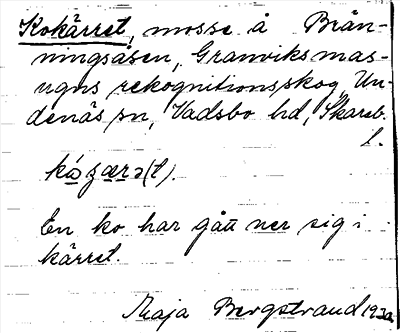 Kokärret, mosse å Brän-
ningsåsen, Granviks mas-
ugns rekognitionsskog, Un-
denäs sn, Vadsbo hd, Skarab.
l.
En ko har gått ner sig i
kärret.
Maja Bergstrand 1930